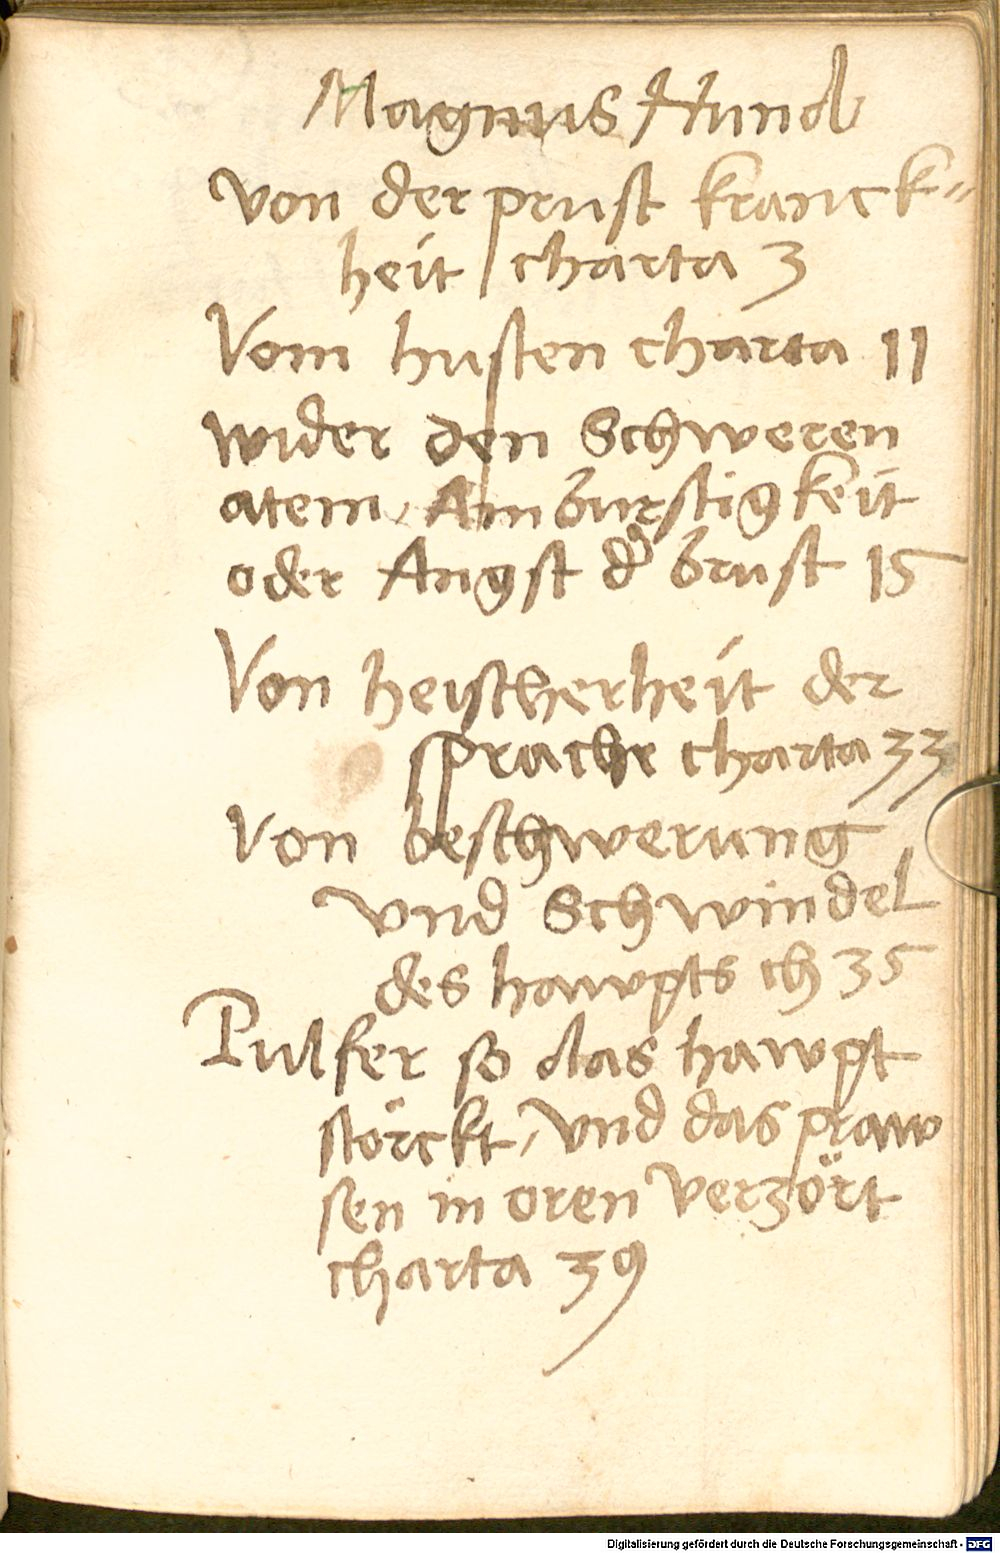 Magnus Hund
von der prust kranck=
heit charta 3
Vom husten charta 11
wider den Schweren
atem, Amburstigkeit
oder Angst d' brust 15
Von heischerheit der
sprache charta 33
Von beschwerung
vnd Schwindel
des hawpts ch 35
Pulfer so das hawpt
störckt, vnd das praw
sen in oren verzört
charta 39
Digitalisierung gefördert durch die Deutsche Forschungsgemeinschaft - DFG